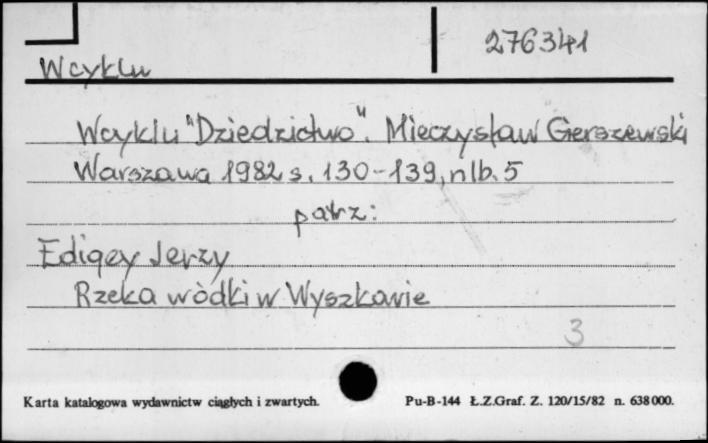 276341
W cyklu
W cyklu "Dziedzictwo". Mieczysław Gerszewski
Warszawa 1982 s. 130-139, nlb. 5
patrz:
Edigey Jerzy
Rzeka wódki w Wyszkowie
3
Karta katalogowa wydawnictw ciągłych i zwartych. Pu-B-144 Ł.Z.Graf. Z. 120/15/82 n. 638000.